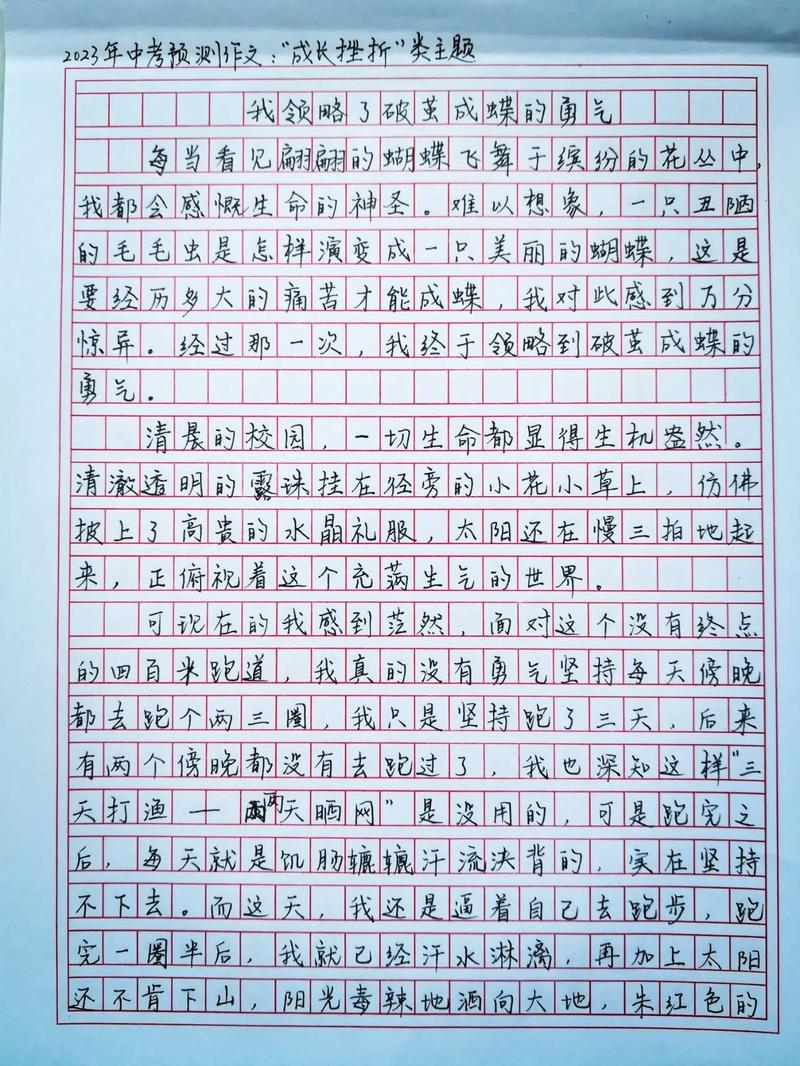 2023年中考预测作文:"成长挫折"类主题
我领略了破茧成蝶的勇气
每当看见翩翩的蝴蝶飞舞于缤纷的花丛中,
我都会感慨生命的神圣。难以想象,一只丑陋
的毛毛虫是怎样演变成一只美丽的蝴蝶,这是
要经历多大的痛苦才能成蝶,我对此感到万分
惊异。经过那一次,我终于领略到破茧成蝶的
勇气。
清晨的校园,一切生命都显得生机盎然。
清澈透明的露珠挂在径旁的小花小草上,仿佛
披上了高贵的水晶礼服,太阳还在慢三拍地起
来,正俯视着这个充满生气的世界。
可现在的我感到茫然,面对这个没有终点
的四百米跑道,我真的没有勇气坚持每天傍晚
都去跑个两三圈,我只是坚持跑了三天,后来
有两个傍晚都没有去跑过了,我也深知这样"三
天打渔一两天晒网"是没用的,可是跑完之
后,每天就是饥肠辘辘汗流浃背的,实在坚持
不下去。而这天,我还是逼着自己去跑步,跑
完一圈半后,我就已经汗水淋漓,再加上太阳
还不肯下山,阳光毒辣地洒向大地,朱红色的